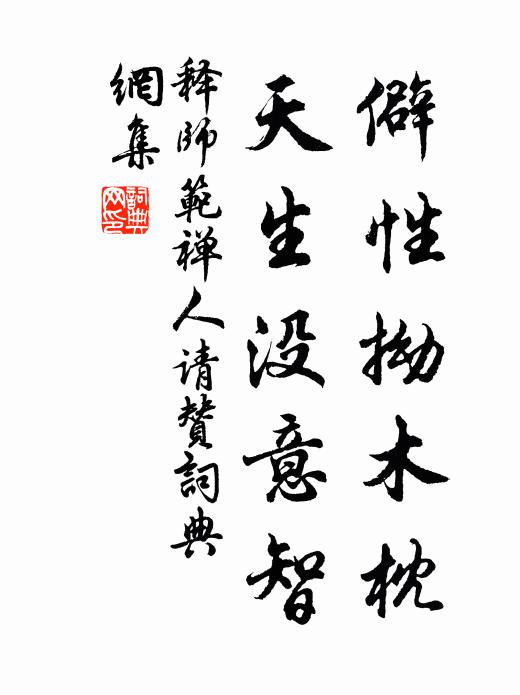 僻性拗木枕
天生没意智
释師範禅人请赞詞典
網集
詞典
网印